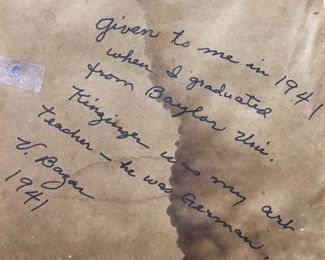 Given to me in 1941
when I graduated
from Baylor Univ.
Kinzinger was my art
teacher – he was German.
V. Bazan
1941